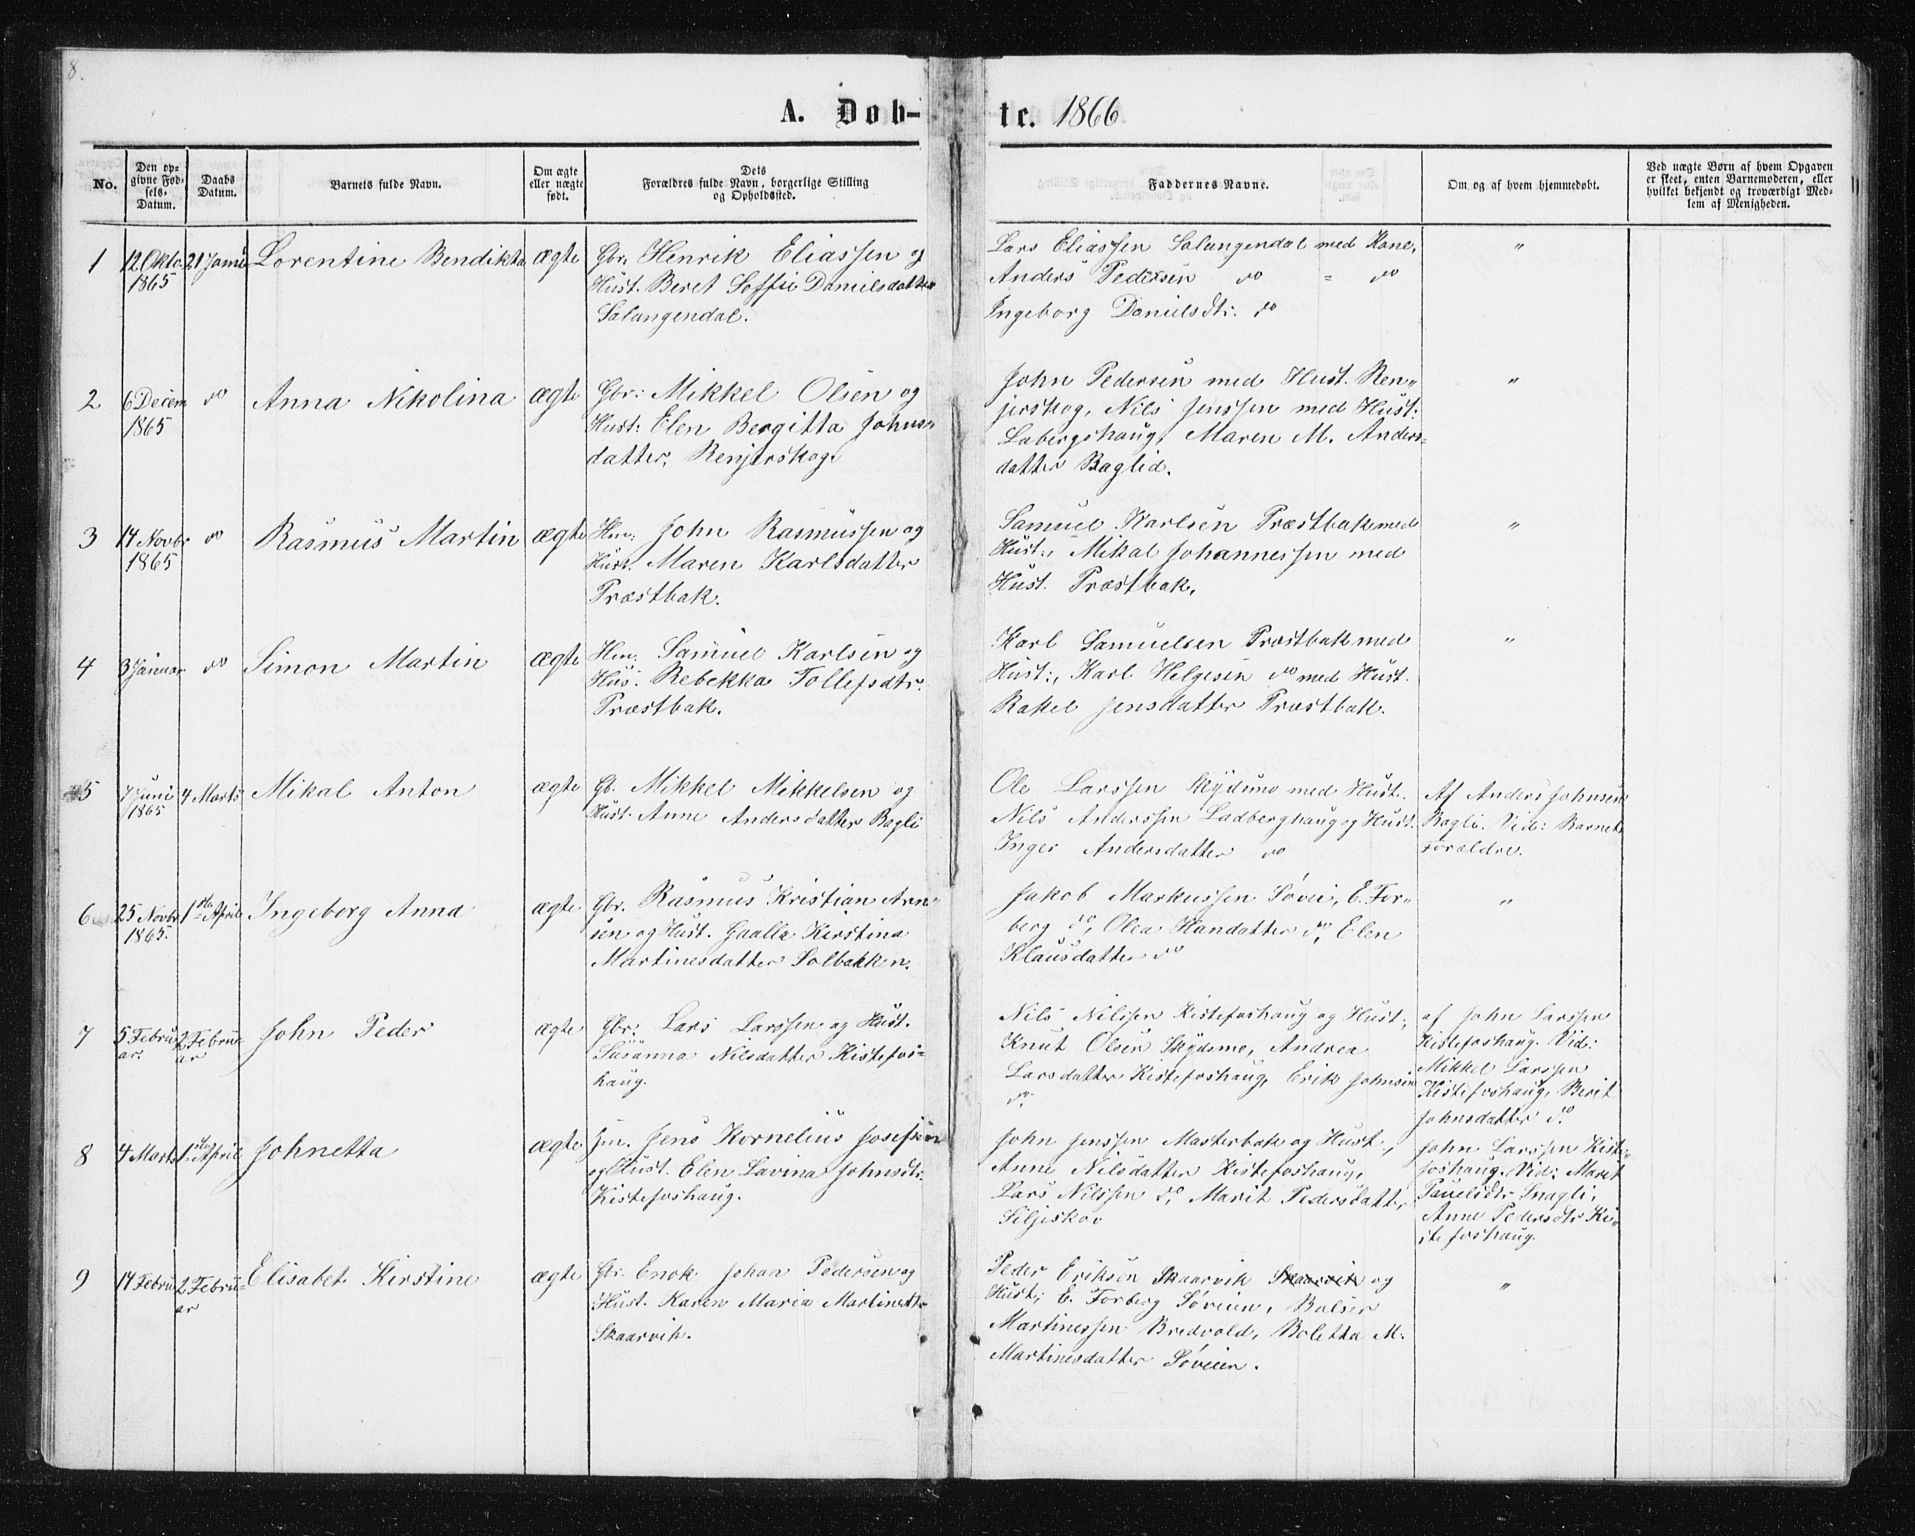 8.
A. Døb- te. 1866
No.
Den op-
givne Fød-
sels-
Datum.
Daabs
Datum.
Barnets fulde Navn.
Om ægte
eller uægte
født.
Dets
Forældres fulde Navn, borgerlige Stilling
og Opholdssted.
Faddernes Navne.
Om og af hvem hjemmedøbt.
Ved uægte Børn af hvem Opgaven
er skeet, enten Barnemoderen, eller
hvilket bekjendt og troværdigt Med-
lem af Menigheden.
1
12 Oktbr
1865
21 Janu
Lorentine Bendikta
ægte
Gbr. Henrik Eliassen og
Hust. Beret Soffie Danielsdatter
Salangendal.
Lars Eliassen Salangendal med Kone,
Anders Pedersen do = do
Ingeborg Danielsdtr. do
"
2
6 Decem
1865
do
Anna Nikolina
ægte
Gbr: Mikkel Olsen og
Hust: Elen Bergitta Johns-
datter, Renjerskog.
John Pedersen med Hust. Ren-
jerskog, Nils Jenssen med Hust.
Labergshaug, Maren M. Anders-
datter Baglid.
"
3
14 Novbr
1865
do
Rasmus Martin
ægte
Hm: John Rasmussen og
Hust. Maren Karlsdatter
Præstbak.
Samuel Karlsen Præstbak med
Hust:, Mikal Johannessen med
Hust. Præstbak,
"
4
3 Januar
do
Simon Martin
ægte
Hm: Samuel Karlsen og
Hus. Rebekka Tollefsdtr.
Præstbak.
Karl Samuelsen Præstbak med
Hust:, Karl Helgesen do med Hust.
Rakel Jensdatter Præstbak.
"
5
7 Juni
1865
4 Marts
Mikal Anton
ægte
Gb. Mikkel Mikkelsen og
Hust. Anne Andersdatter Bagli
Ole Larssen Skydsmo med Hust.
Nils Anderssen Ladberghaug og Hust.
Inger Andersdatter do
Af Anders Johnsen
Bagli. Vid: Barnets
Forældre.
6
25 Novbr
1865.
1ste April
Ingeborg Anna
ægte
Gbr. Rasmus Kristian Arn-
sen og Hust. Gaalla Kirstina
Martinesdatter Solbakken.
Jakob Markussen Søvei, E. For-
berg do, Olea Handatter do, Elen
Klausdatter do
"
7
5 Febru-
ar.
2 Febru-
ar
John Peder
ægte
Gbr. Lars Larssen og Hust.
Susanna Nilsdatter Kistefos-
haug.
Nils Nilssen Kistefoshaug og Hust.,
Knut Olsen Skydsmo, Andrea
Larsdatter Kistefoshaug, Erik Johnsen
do.
af John Larssen
Kistefoshaug. Vid:
Mikkel Larssen
Kistefoshaug, Berit
Johnsdatter do
8
4 Marts
1ste April
Johnetta
ægte
Hm. Jens Kornelius Josefsen
og Hust. Elen Lavina Johnsdtr.
Kistefoshaug.
John Jenssen Masterbak og Hust.,
Anne Nilsdatter Kistefoshaug,
Lars Nilssen do, Marit Pedersdatter
Siljeskov
John Larssen Kiste-
foshaug. Vid: Marit
Pauelsdtr Snagli,
Anne Pedersdtr Ki-
stefoshaug.
9
14 Febru
2 Febru-
ar
Elisabet Kirstine
ægte
Gbr. Enok Johan Pedersen og
Hust. Karen Maria Martinsdtr
Skaarvik.
Peder Eriksen Skaarvik Skaarvik og
Hust; E. Forberg Søveien, Balser
Martinessen Bredvold, Boletta M.
Martinesdatter Søveien.
"